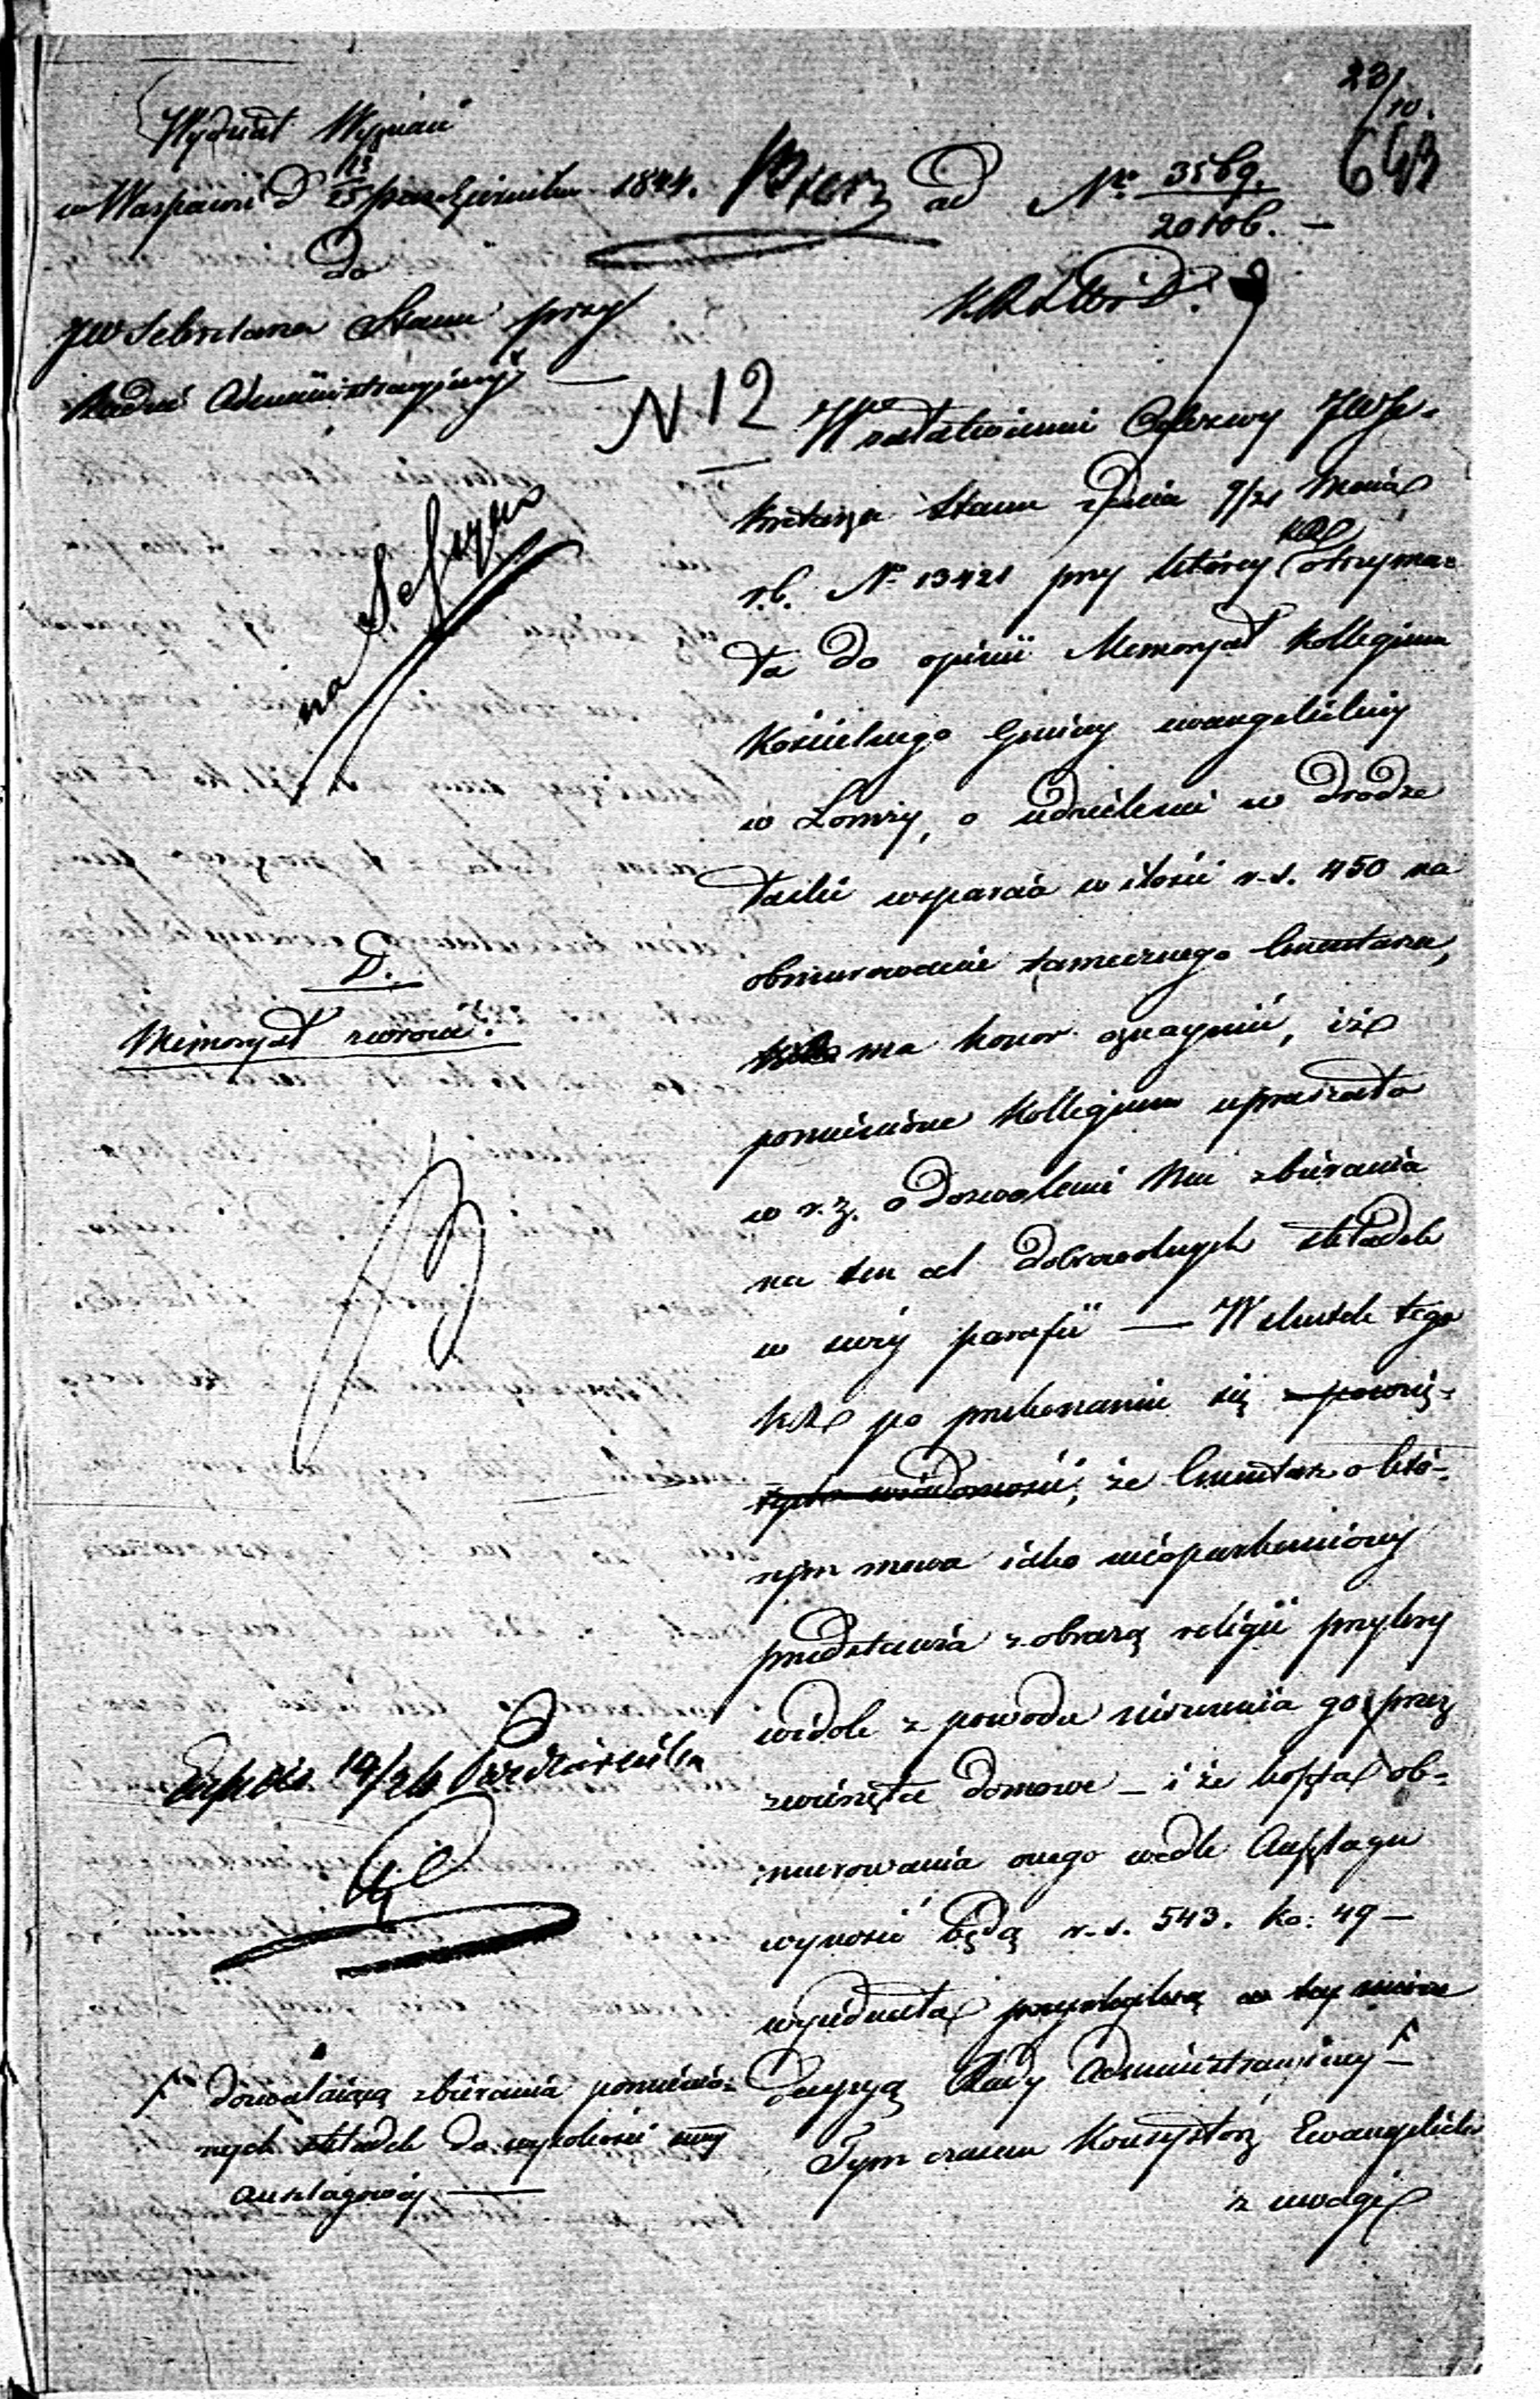 23/10.
643
Wydział Wyznań
w Warszawie d 13/25 października 1844.
ad No 3569./20106. —
do
JW Sekretarza Stanu przy
Radzie Administracyjnej —
N 12
W załatwieniu Odezwy JWSe-
kretarza Stanu z dnia 9/21 Maia
r.b. No 13421 przy którey KR otrzyma-
ła do opinii Memoryał Kollegium
Kościelnego Gminy ewangelickiey
w Łomży, o udzielenie w drodze
łaski wsparcia w ilości r.s. 450 na
obmurowanie tamecznego Cmentarza,
ma honor oznaymić, iż
pomienione Kollegium upraszało
w r.z. o dozwolenie Mu zbierania
na ten cel dobrowolnych składek
w swéy parafii — W skutek tego
KR po przekonaniu się z powzię-
tych wiadomości, że Cmentarz o któ-
rym mowa iako nieoparkaniony
przedstawia z obrazą religii przykry
widok z powodu niszczenia go przez
zwierzęta domowe — i że koszta ob-
murowania onego wedle Anszlagu
wynosić będą r.s. 543. ko: 49 —
wyiednała przychylną w tey mierze
decyzyą Rady Administracyiney F
Tym czasem Konsystorz Ewangelicki
z uwagi
na Sessyą
D.
Memoryał zwrócić.
19/26 Października
F dozwalaiącą zbierania pomienio-
nych składek do wysokości summy
anszlagowéy —